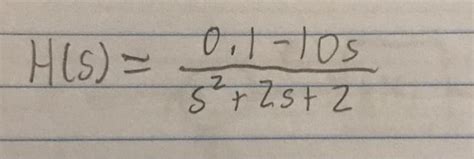 H(s) = (0.1 - 10s) / (s² + 2s + 2)